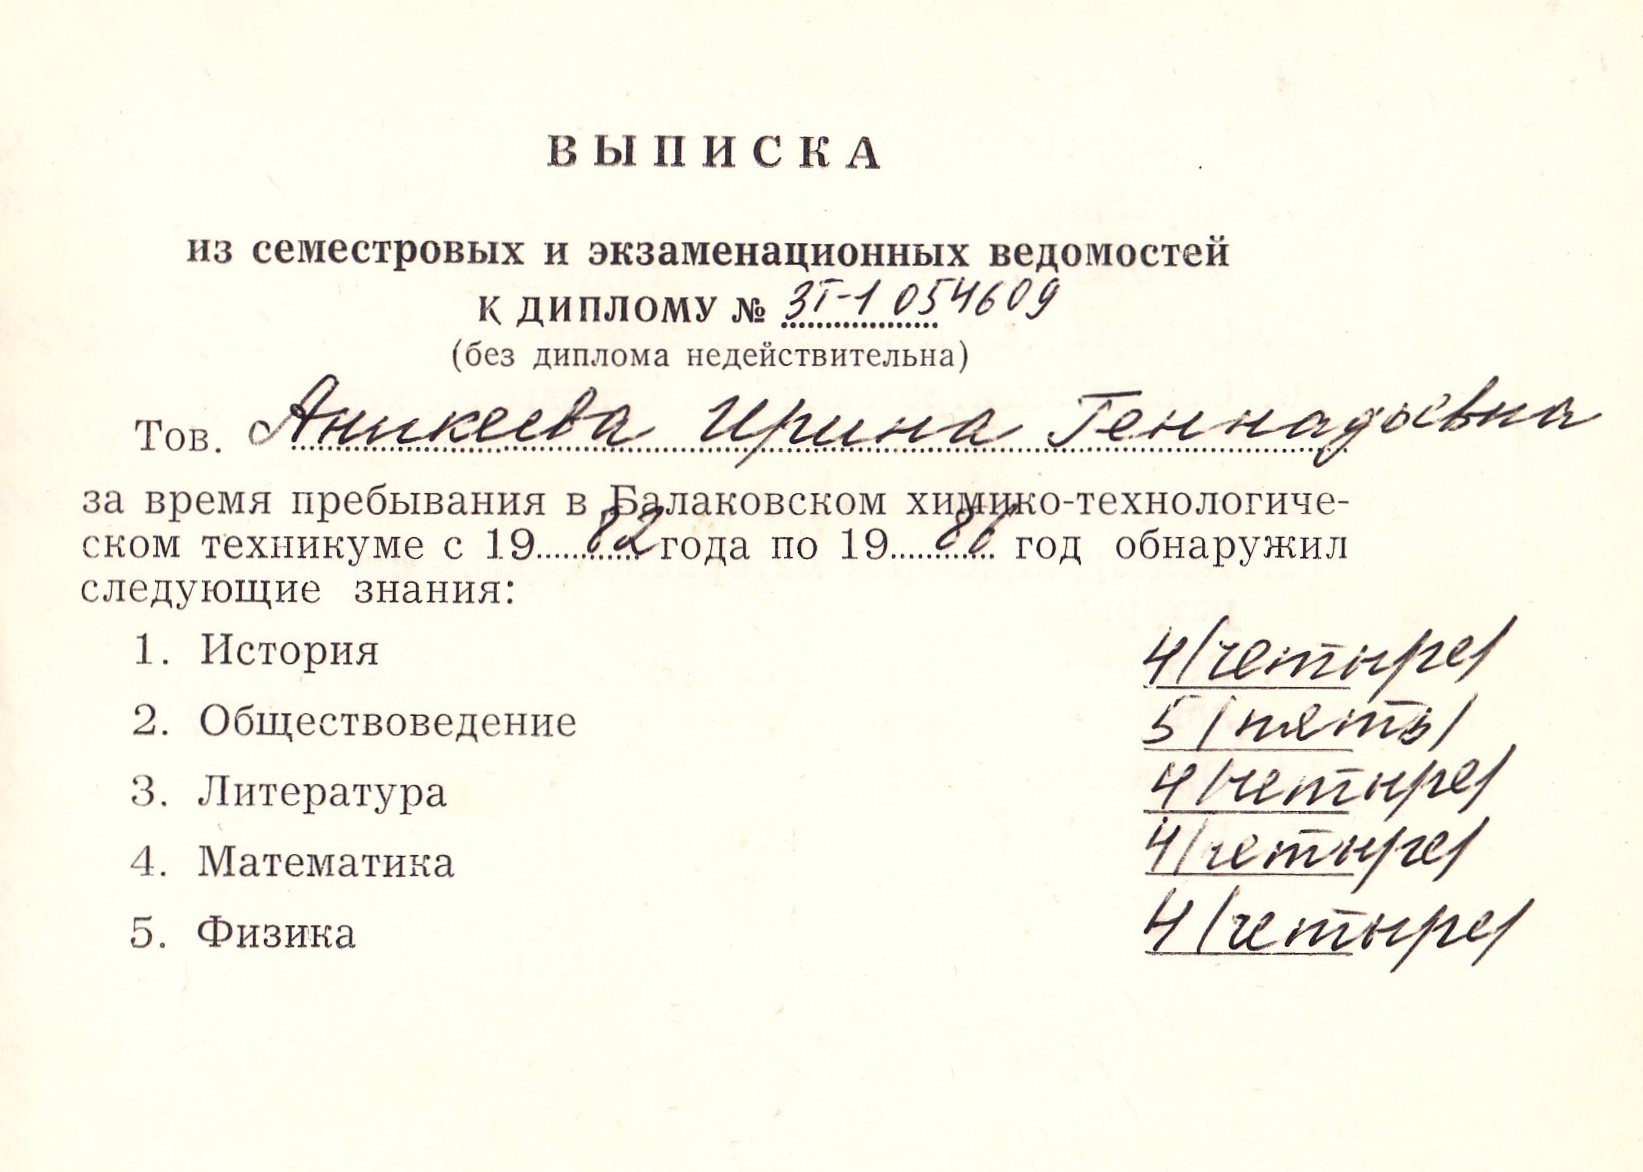 ВЫПИСКА
из семестровых и экзаменационных ведомостей
К ДИПЛОМУ № ЗТ-1 054609
(без диплома недействительна)
Тов. Аникеева Ирина Геннадьевна
за время пребывания в Балаковском химико-технологиче-
ском техникуме с 19 82 года по 19 86 год обнаружил
следующие знания:
1. История 4/четыре/
2. Обществоведение 5/пять/
3. Литература 4/четыре/
4. Математика 4/четыре/
5. Физика 4/четыре/